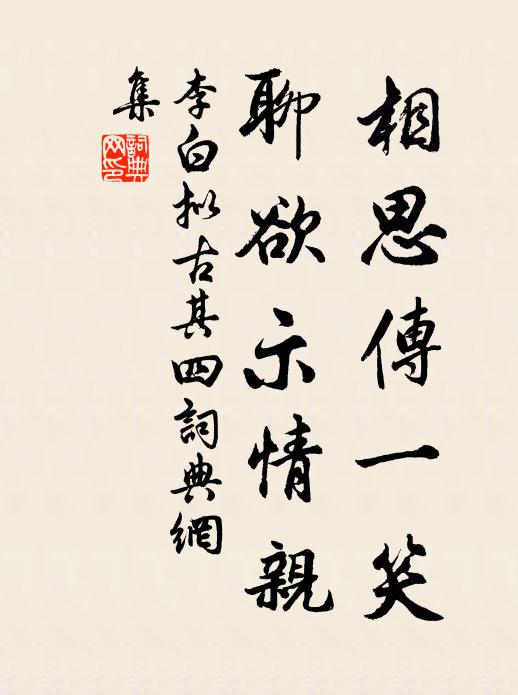 相思傳一笑
聊欲示情親
李白拟古其四詞典網
集
詞典
网印